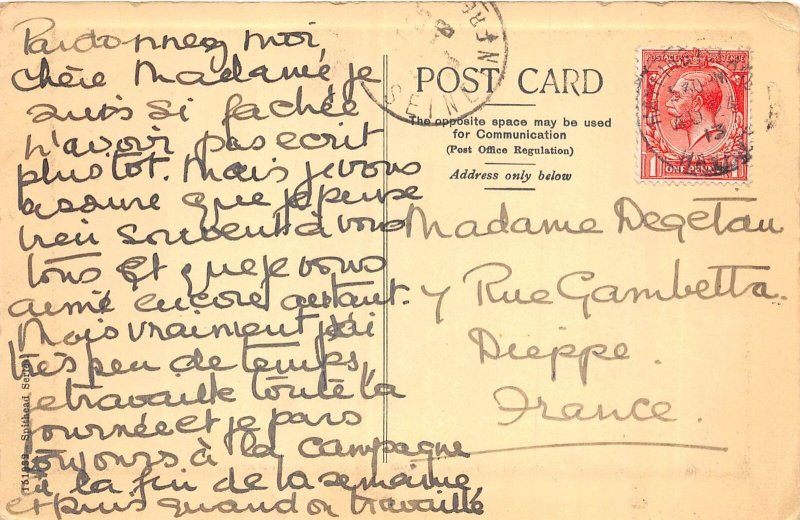 Pardonnez moi,
chère Madame, je
suis si fachée
n'avoir pas ecrit
plus tot. Mais je vous
assure que je pense
bien souvent à vous
tous et que je vous
aime encore autant.
Mais vraiment j'ai
très peu de temps,
je travaille toute la
journée et je pars
toujours à la campagne
à la fin de la semaine,
et puis quand on travaille
POST CARD
The opposite space may be used
for Communication
(Post Office Regulation)
Address only below
Madame Degetau
7 Rue Gambetta.
Dieppe.
France.
POSTAGE REVENUE
1 ONE PENNY 1
SEINE
13
Spithead,